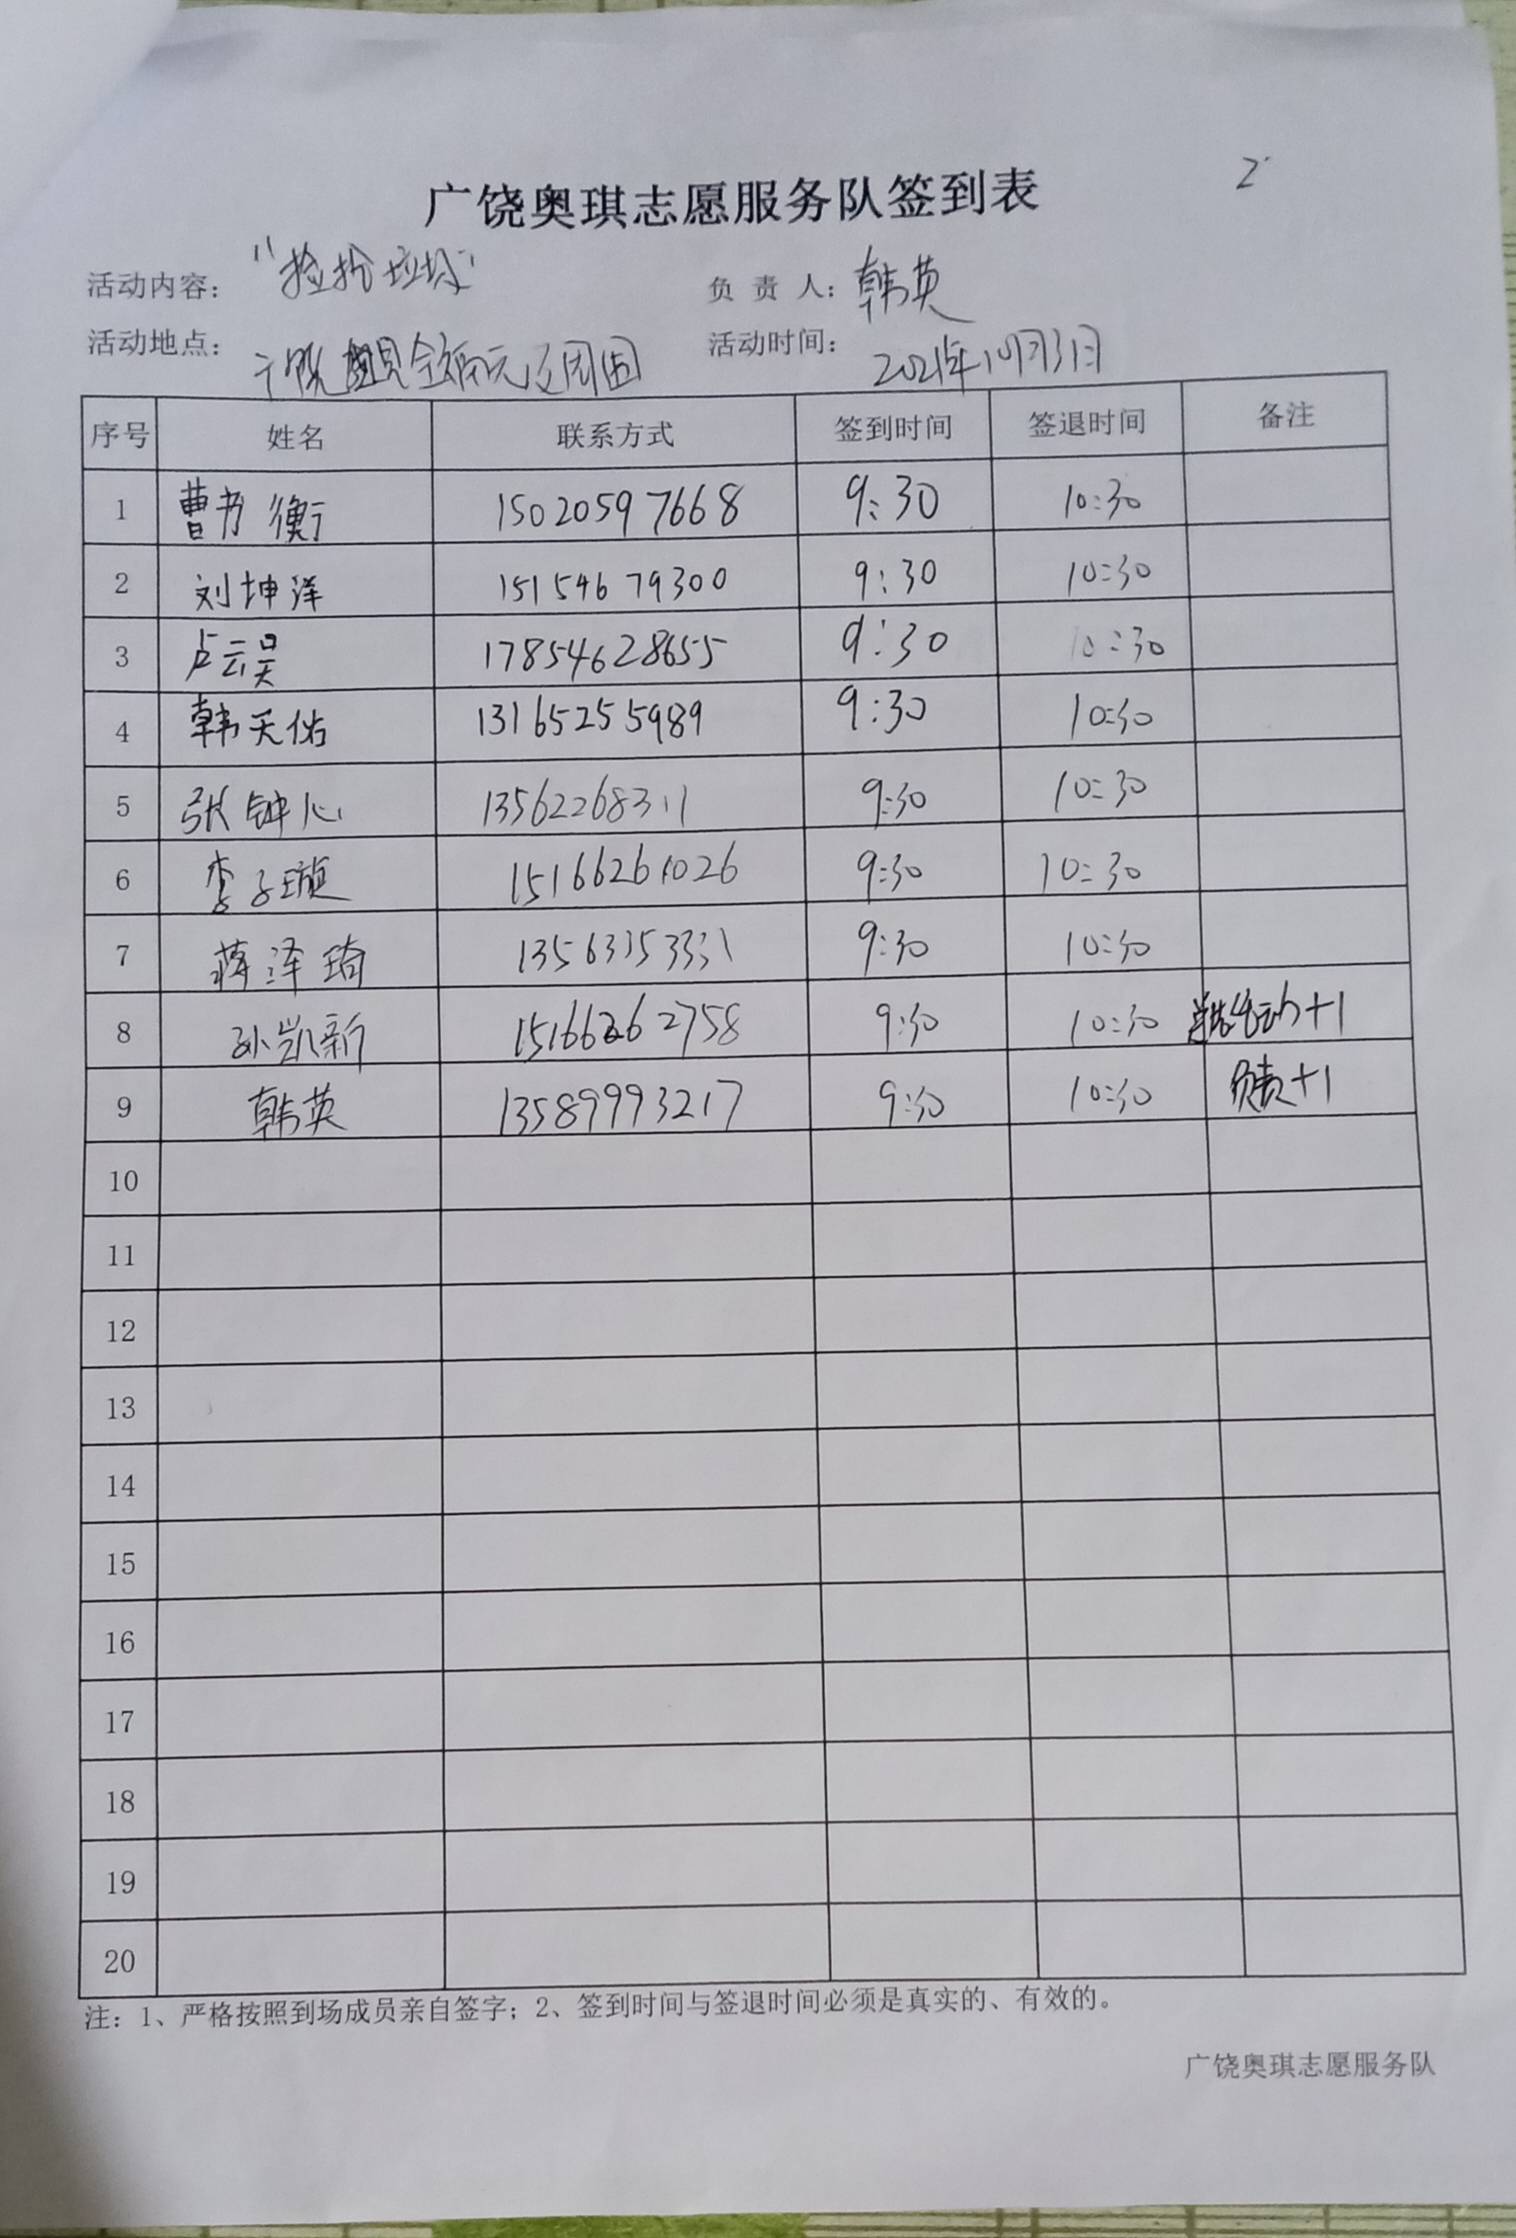 2
广饶奥琪志愿服务队签到表
活动内容： "捡拾垃圾" 负 责 人：韩英
活动地点： 广饶 及周围 活动时间： 2021年10月3日
序号 姓名 联系方式 签到时间 签退时间 备注
1 曹书衡 15020597668 9:30 10:30
2 刘坤洋 15154679300 9:30 10:30
3 卢云昊 17854628655 9:30 10:30
4 韩天佑 13165255989 9:30 10:30
5 张钟心 13562268311 9:30 10:30
6 李子璇 15166261026 9:30 10:30
7 蒋泽琦 13563353331 9:30 10:30
8 孙凯新 15166262758 9:30 10:30 活动+1
9 韩英 13589993217 9:30 10:30 负责+1
10
11
12
13
14
15
16
17
18
19
20
注：1、严格按照到场成员亲自签字；2、签到时间与签退时间必须是真实的、有效的。
广饶奥琪志愿服务队